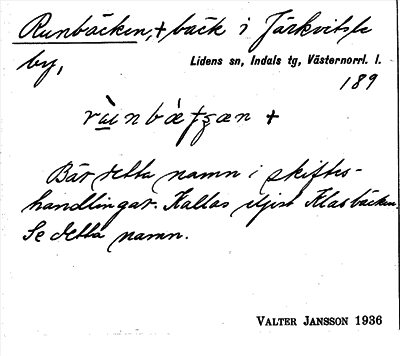 Runbäcken, + bäck i Järkvitsle
by,
Lidens sn, Indals tg, Västernorrl. l.
189
+
Bär detta namn i skiftes-
handlingar. Kallas eljest Klasbäcken.
Se detta namn.
VALTER JANSSON 1936